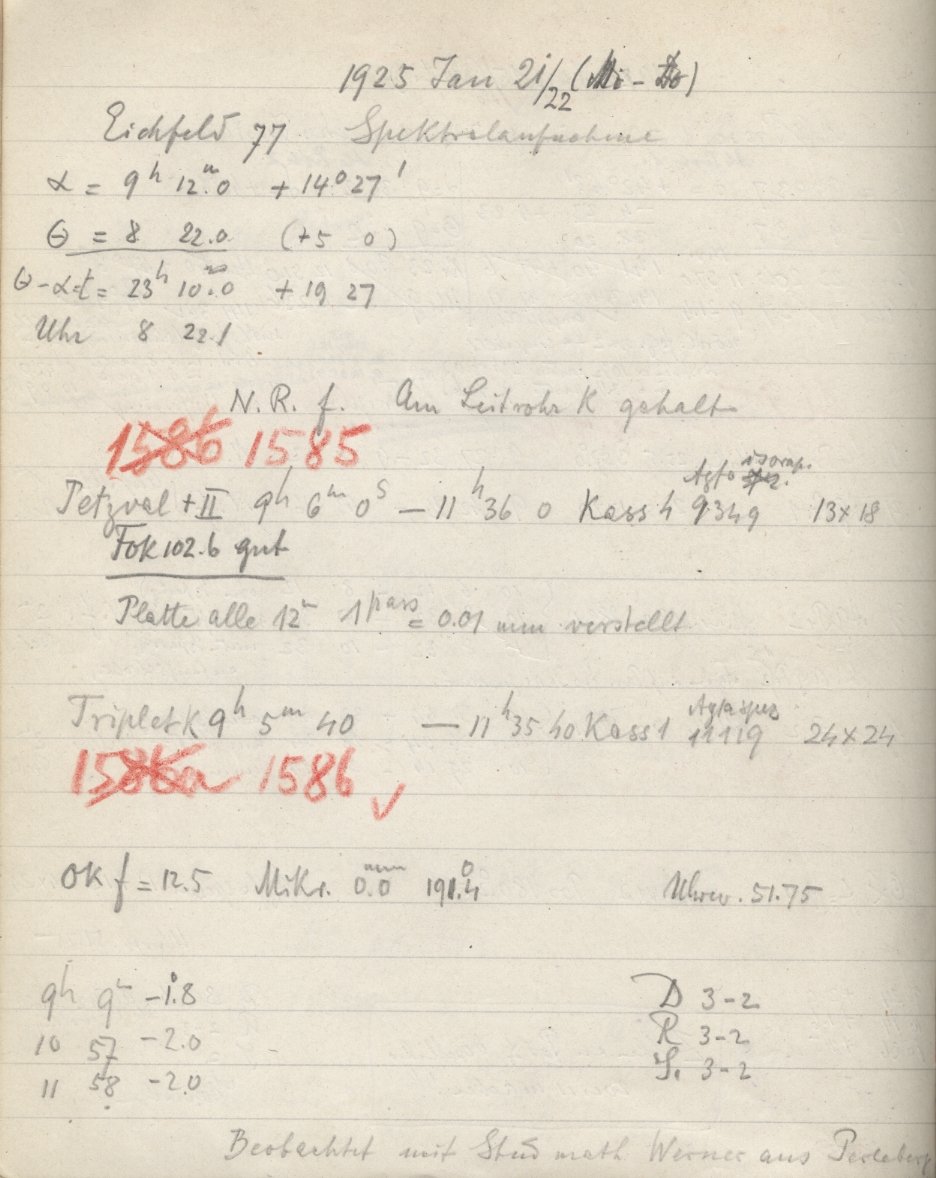 1925 Jan 21/22 (Mi - Do)
Eichfeld 77 Spektralaufnahme
α = 9h 12m.0 + 14° 27'
θ = 8 22.0 (+5 0)
θ-α=t = 23h 10m.0 + 19 27
Uhr 8 22.1
N.R. f. Am Leitrohr K gehalt
1586 1585
Agfa isorap.
Petzval + II 9h 6m 0s — 11h 36 0 Kass 4 9349 13×18
Fok 102.6 gut
Platte alle 12m 1 pars = 0.01 mm verstellt
Agfa spez
Triplet K 9h 5m 40 — 11h 35 40 Kass 1 11119 24×24
1586a 1586 ✓
OK f = 12.5 Mikr. 0.0mm 191.4° Uhrw. 51.75
9h 9m -1°.8 D 3-2
10 57 -2.0 R 3-2
11 58 -2.0 S. 3-2
Beobachtet mit Stud math Werner aus Perleberg